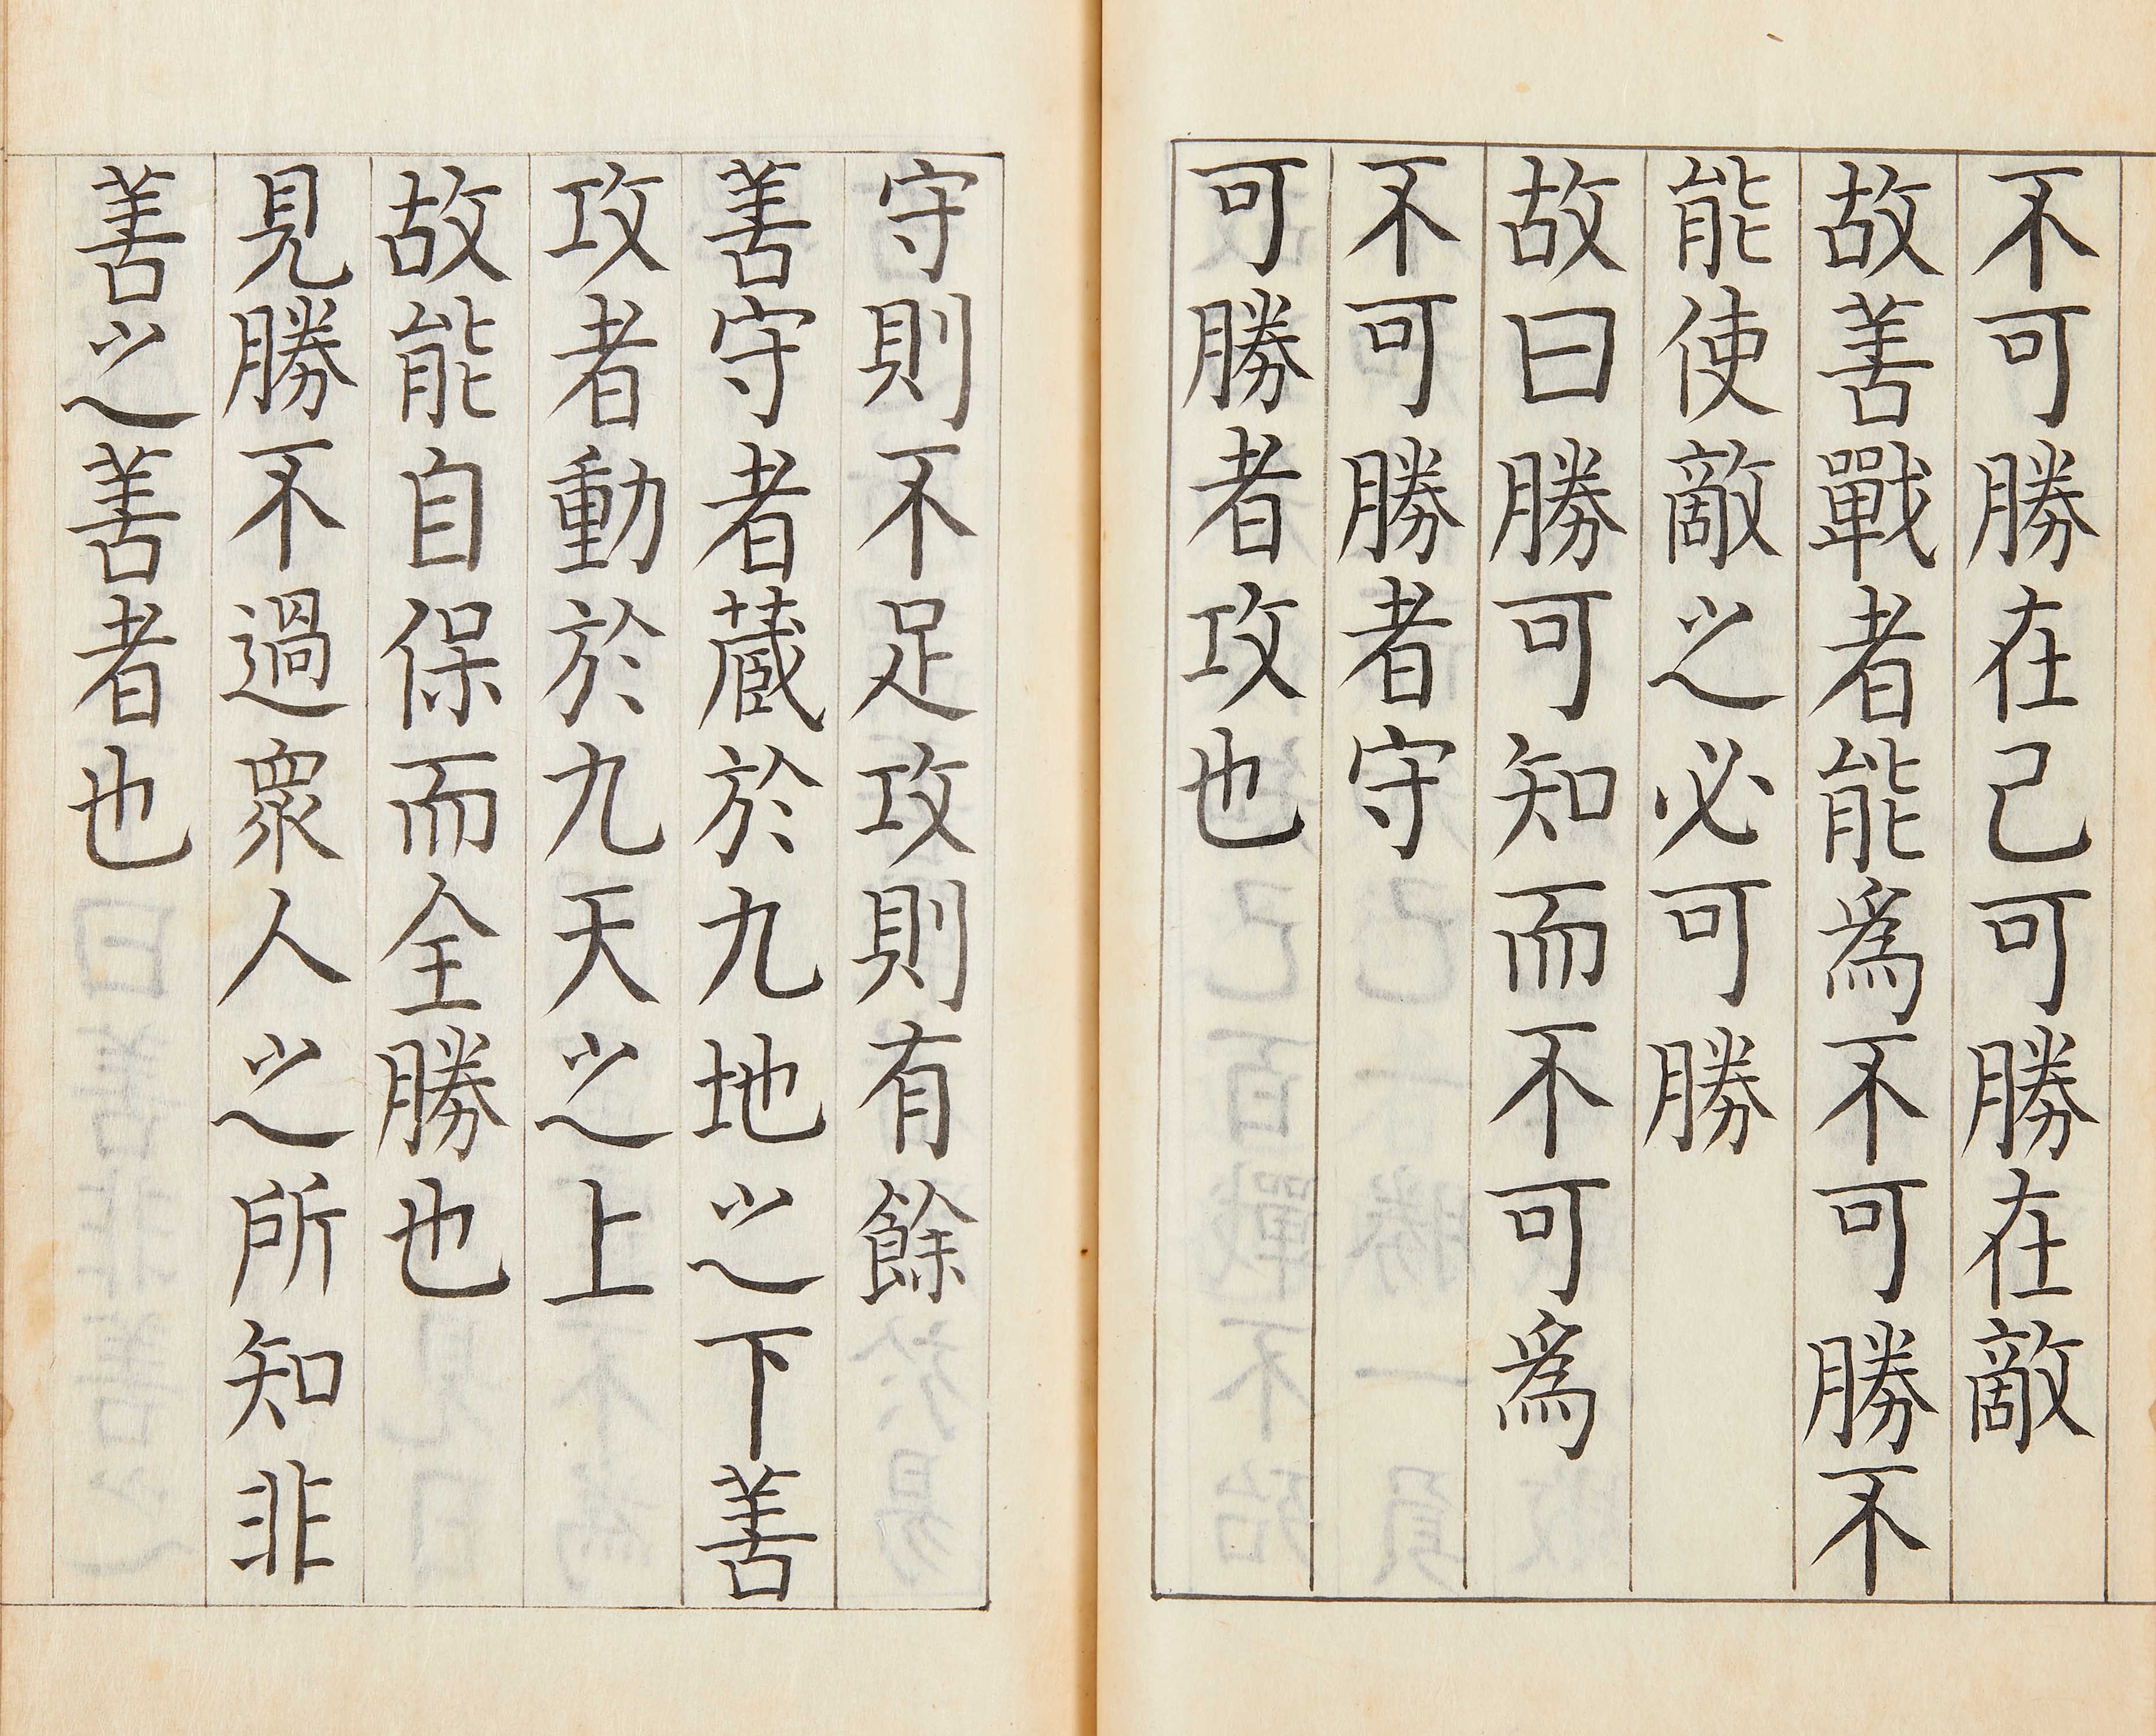 不可勝在己可勝在敵
故善戰者能爲不可勝不
能使敵之必可勝
故曰勝可知而不可爲
不可勝者守
可勝者攻也
守則不足攻則有餘
善守者藏於九地之下善
攻者動於九天之上
故能自保而全勝也
見勝不過衆人之所知非
善之善者也